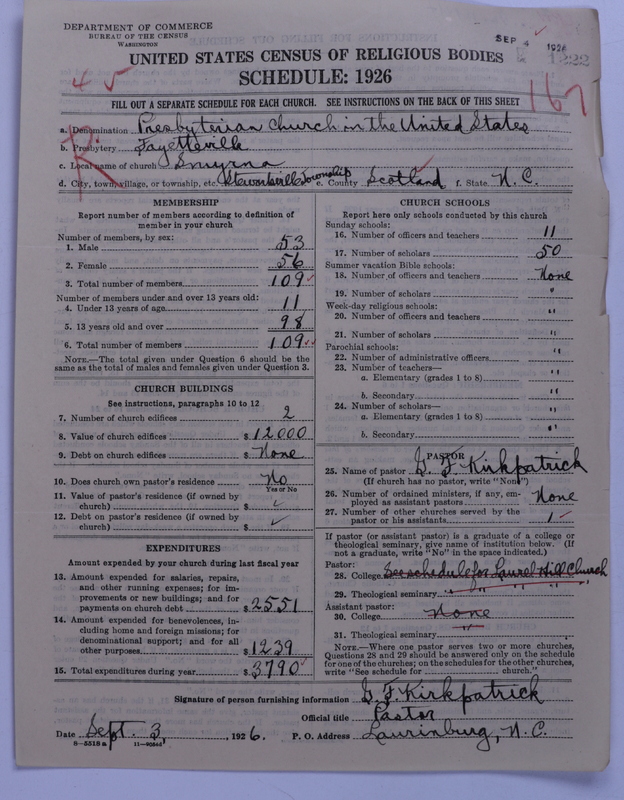 DEPARTMENT OF COMMERCE
BUREAU OF THE CENSUS
WASHINGTON
SEP 4 1926
1222
UNITED STATES CENSUS OF RELIGIOUS BODIES
SCHEDULE: 1926
45
167
R.
FILL OUT A SEPARATE SCHEDULE FOR EACH CHURCH. SEE INSTRUCTIONS ON THE BACK OF THIS SHEET
a. Denomination Presbyterian Church in the United States
b. Presbytery Fayetteville
c. Local name of church Smyrna
d. City, town, village, or township, etc. Stewartsville Township e. County Scotland f. State N. C.
MEMBERSHIP
Report number of members according to definition of
member in your church
Number of members, by sex:
1. Male 53
2. Female 56
3. Total number of members 109
Number of members under and over 13 years old:
4. Under 13 years of age 11
5. 13 years old and over 98
6. Total number of members 109
NOTE.—The total given under Question 6 should be the
same as the total of males and females given under Question 3.
CHURCH BUILDINGS
See instructions, paragraphs 10 to 12
7. Number of church edifices 2
8. Value of church edifices $ 12000
9. Debt on church edifices $ None
10. Does church own pastor's residence No
Yes or No
11. Value of pastor's residence (if owned by
church) $ ✓
12. Debt on pastor's residence (if owned by
church) $ ✓
EXPENDITURES
Amount expended by your church during last fiscal year
13. Amount expended for salaries, repairs,
and other running expenses; for im-
provements or new buildings; and for
payments on church debt $ 2551
14. Amount expended for benevolences, in-
cluding home and foreign missions; for
denominational support; and for all
other purposes $ 1239
15. Total expenditures during year $ 3790
CHURCH SCHOOLS
Report here only schools conducted by this church
Sunday schools:
16. Number of officers and teachers 11
17. Number of scholars 50
Summer vacation Bible schools:
18. Number of officers and teachers None
19. Number of scholars "
Week-day religious schools:
20. Number of officers and teachers "
21. Number of scholars "
Parochial schools:
22. Number of administrative officers "
23. Number of teachers—
a. Elementary (grades 1 to 8) "
b. Secondary "
24. Number of scholars—
a. Elementary (grades 1 to 8) "
b. Secondary "
PASTOR
25. Name of pastor G. F. Kirkpatrick
(If church has no pastor, write "None")
26. Number of ordained ministers, if any, em-
ployed as assistant pastors None
27. Number of other churches served by the
pastor or his assistants 1
If pastor (or assistant pastor) is a graduate of a college or
theological seminary, give name of institution below. (If
not a graduate, write "No" in the space indicated.)
Pastor:
28. College See schedule for Laurel Hill Church
29. Theological seminary " " " " "
Assistant pastor:
30. College None
31. Theological seminary "
NOTE.—Where one pastor serves two or more churches,
Questions 28 and 29 should be answered only on the schedule
for one of the churches; on the schedules for the other churches,
write "See schedule for church."
Signature of person furnishing information G. F. Kirkpatrick
Official title Pastor
Date Sept. 3, 1926. P. O. Address Laurinburg, N. C.
8—5518 a 11—90845